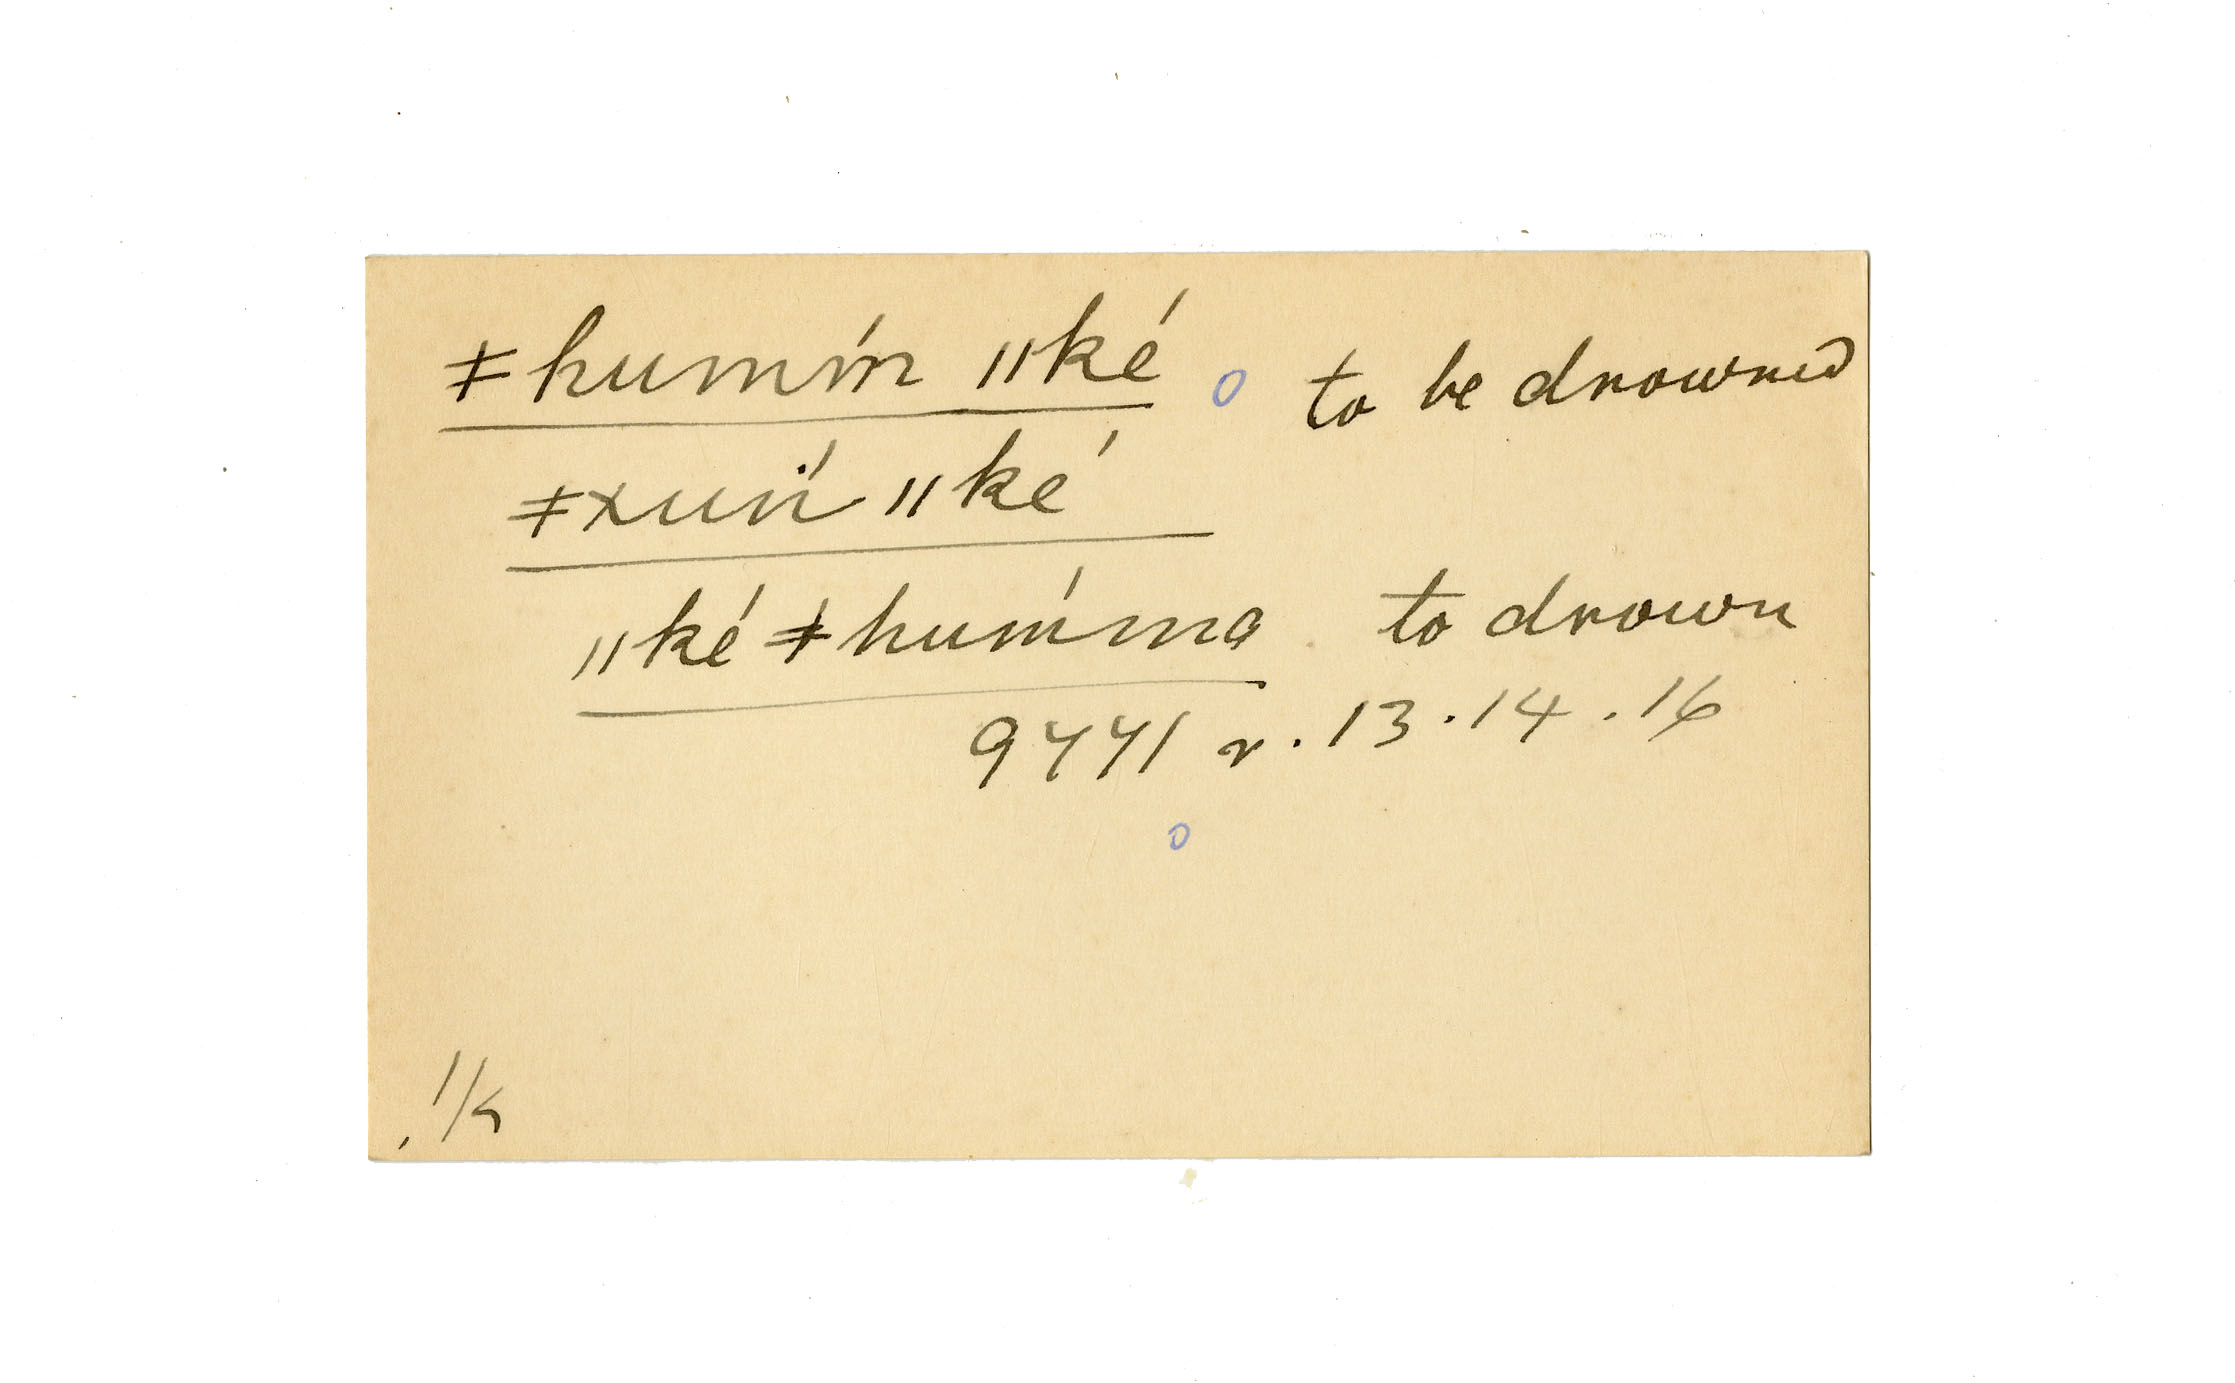 ǂhumḿ ǁké o to be drowned
ǂxuń̇ ǁké
ǁké ǂhuḿma to drown
9441 v. 13.14.16
o